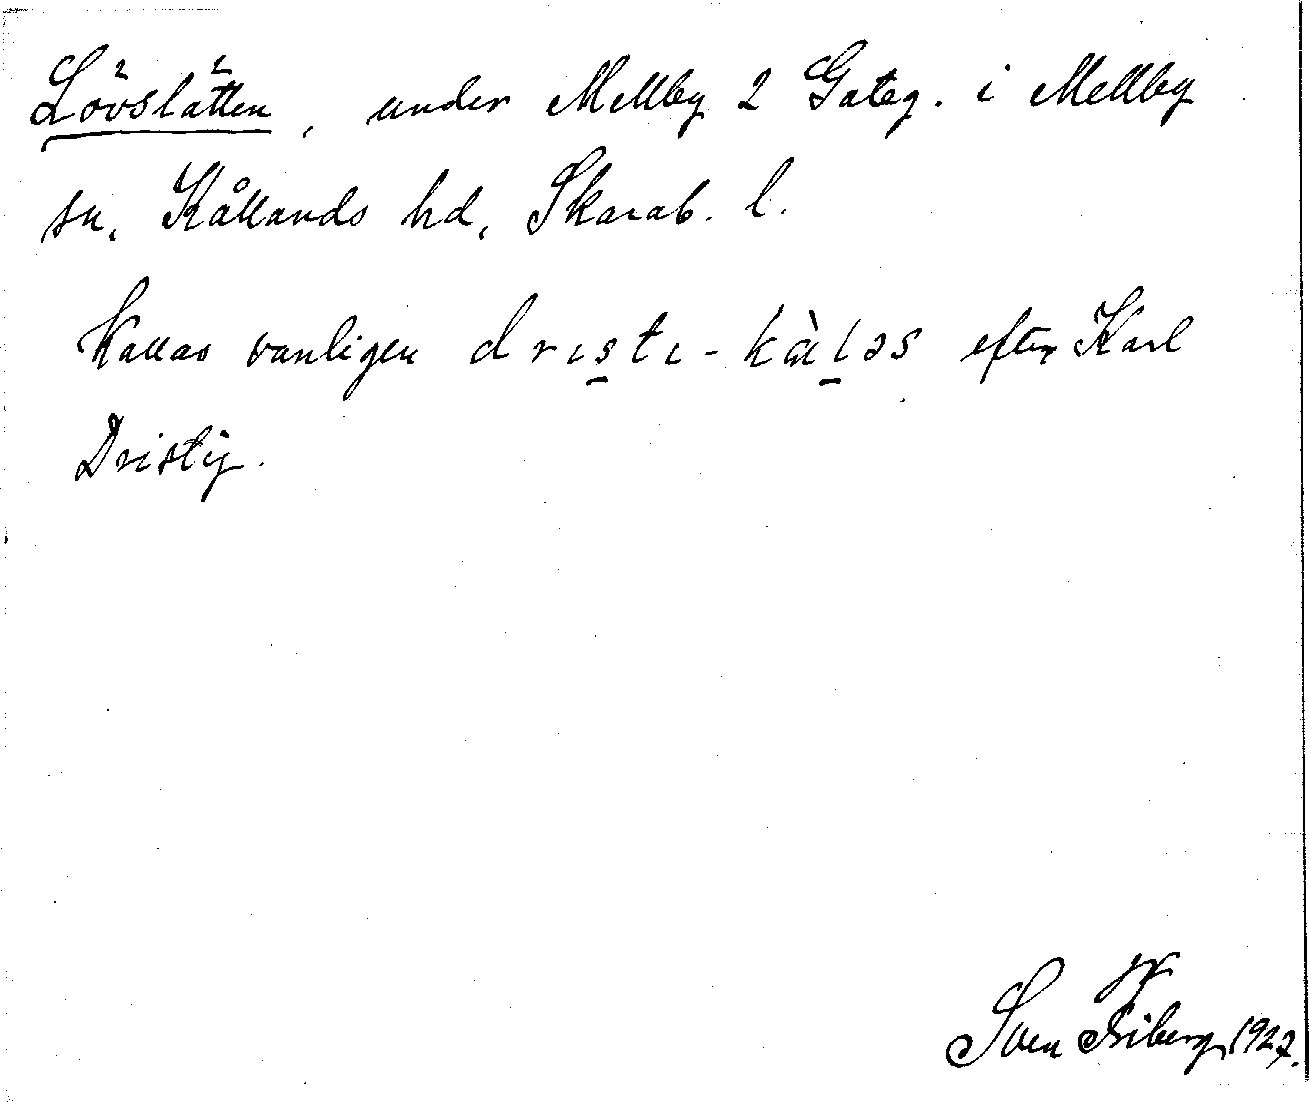 Lövslätten, under Mellby 2 Gateg. i Mellby
sn, Kållands hd, Skarab. l.
Kallas vanligen dristı-kàləs efter Karl
Dristig.
Sven Friberg 1927.